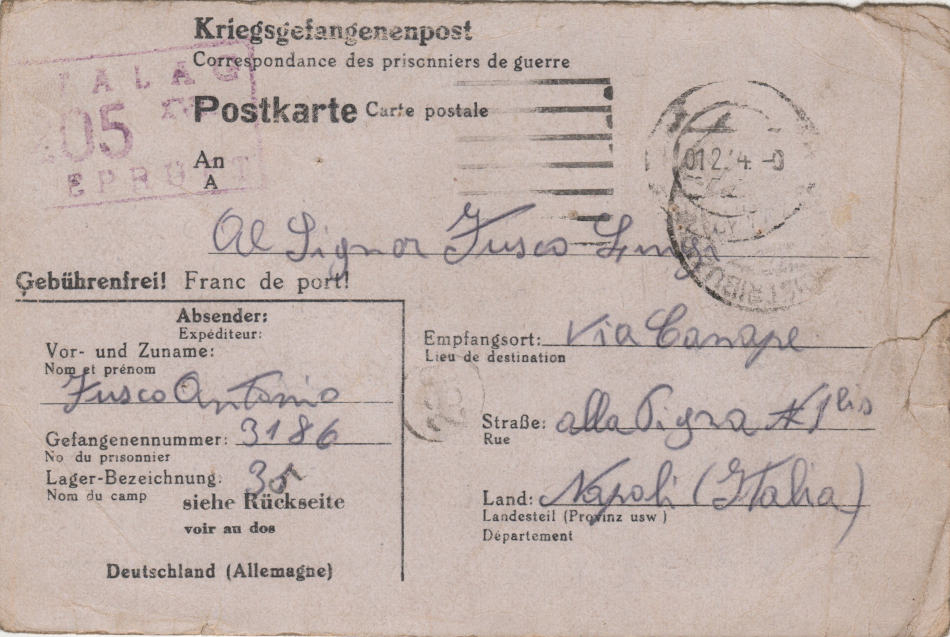 Kriegsgefangenenpost
Correspondance des prisonniers de guerre
Postkarte Carte postale
ALAG
05
EPRÜFT
An
A
01.2.4.-0
Al Signor Fusco Luigi
DISTRIBUZ
Gebührenfrei! Franc de port!
Absender:
Expéditeur:
Vor- und Zuname:
Nom et prénom
Fusco Antonio
Gefangenennummer: 3186
No du prisonnier
Lager-Bezeichnung: 35
Nom du camp
siehe Rückseite
voir au dos
Deutschland (Allemagne)
Empfangsort: Via Canape
Lieu de destination
Straße: alla Vigna N 1 bis
Rue
Land: Napoli (Italia)
Landesteil (Provinz usw)
Département